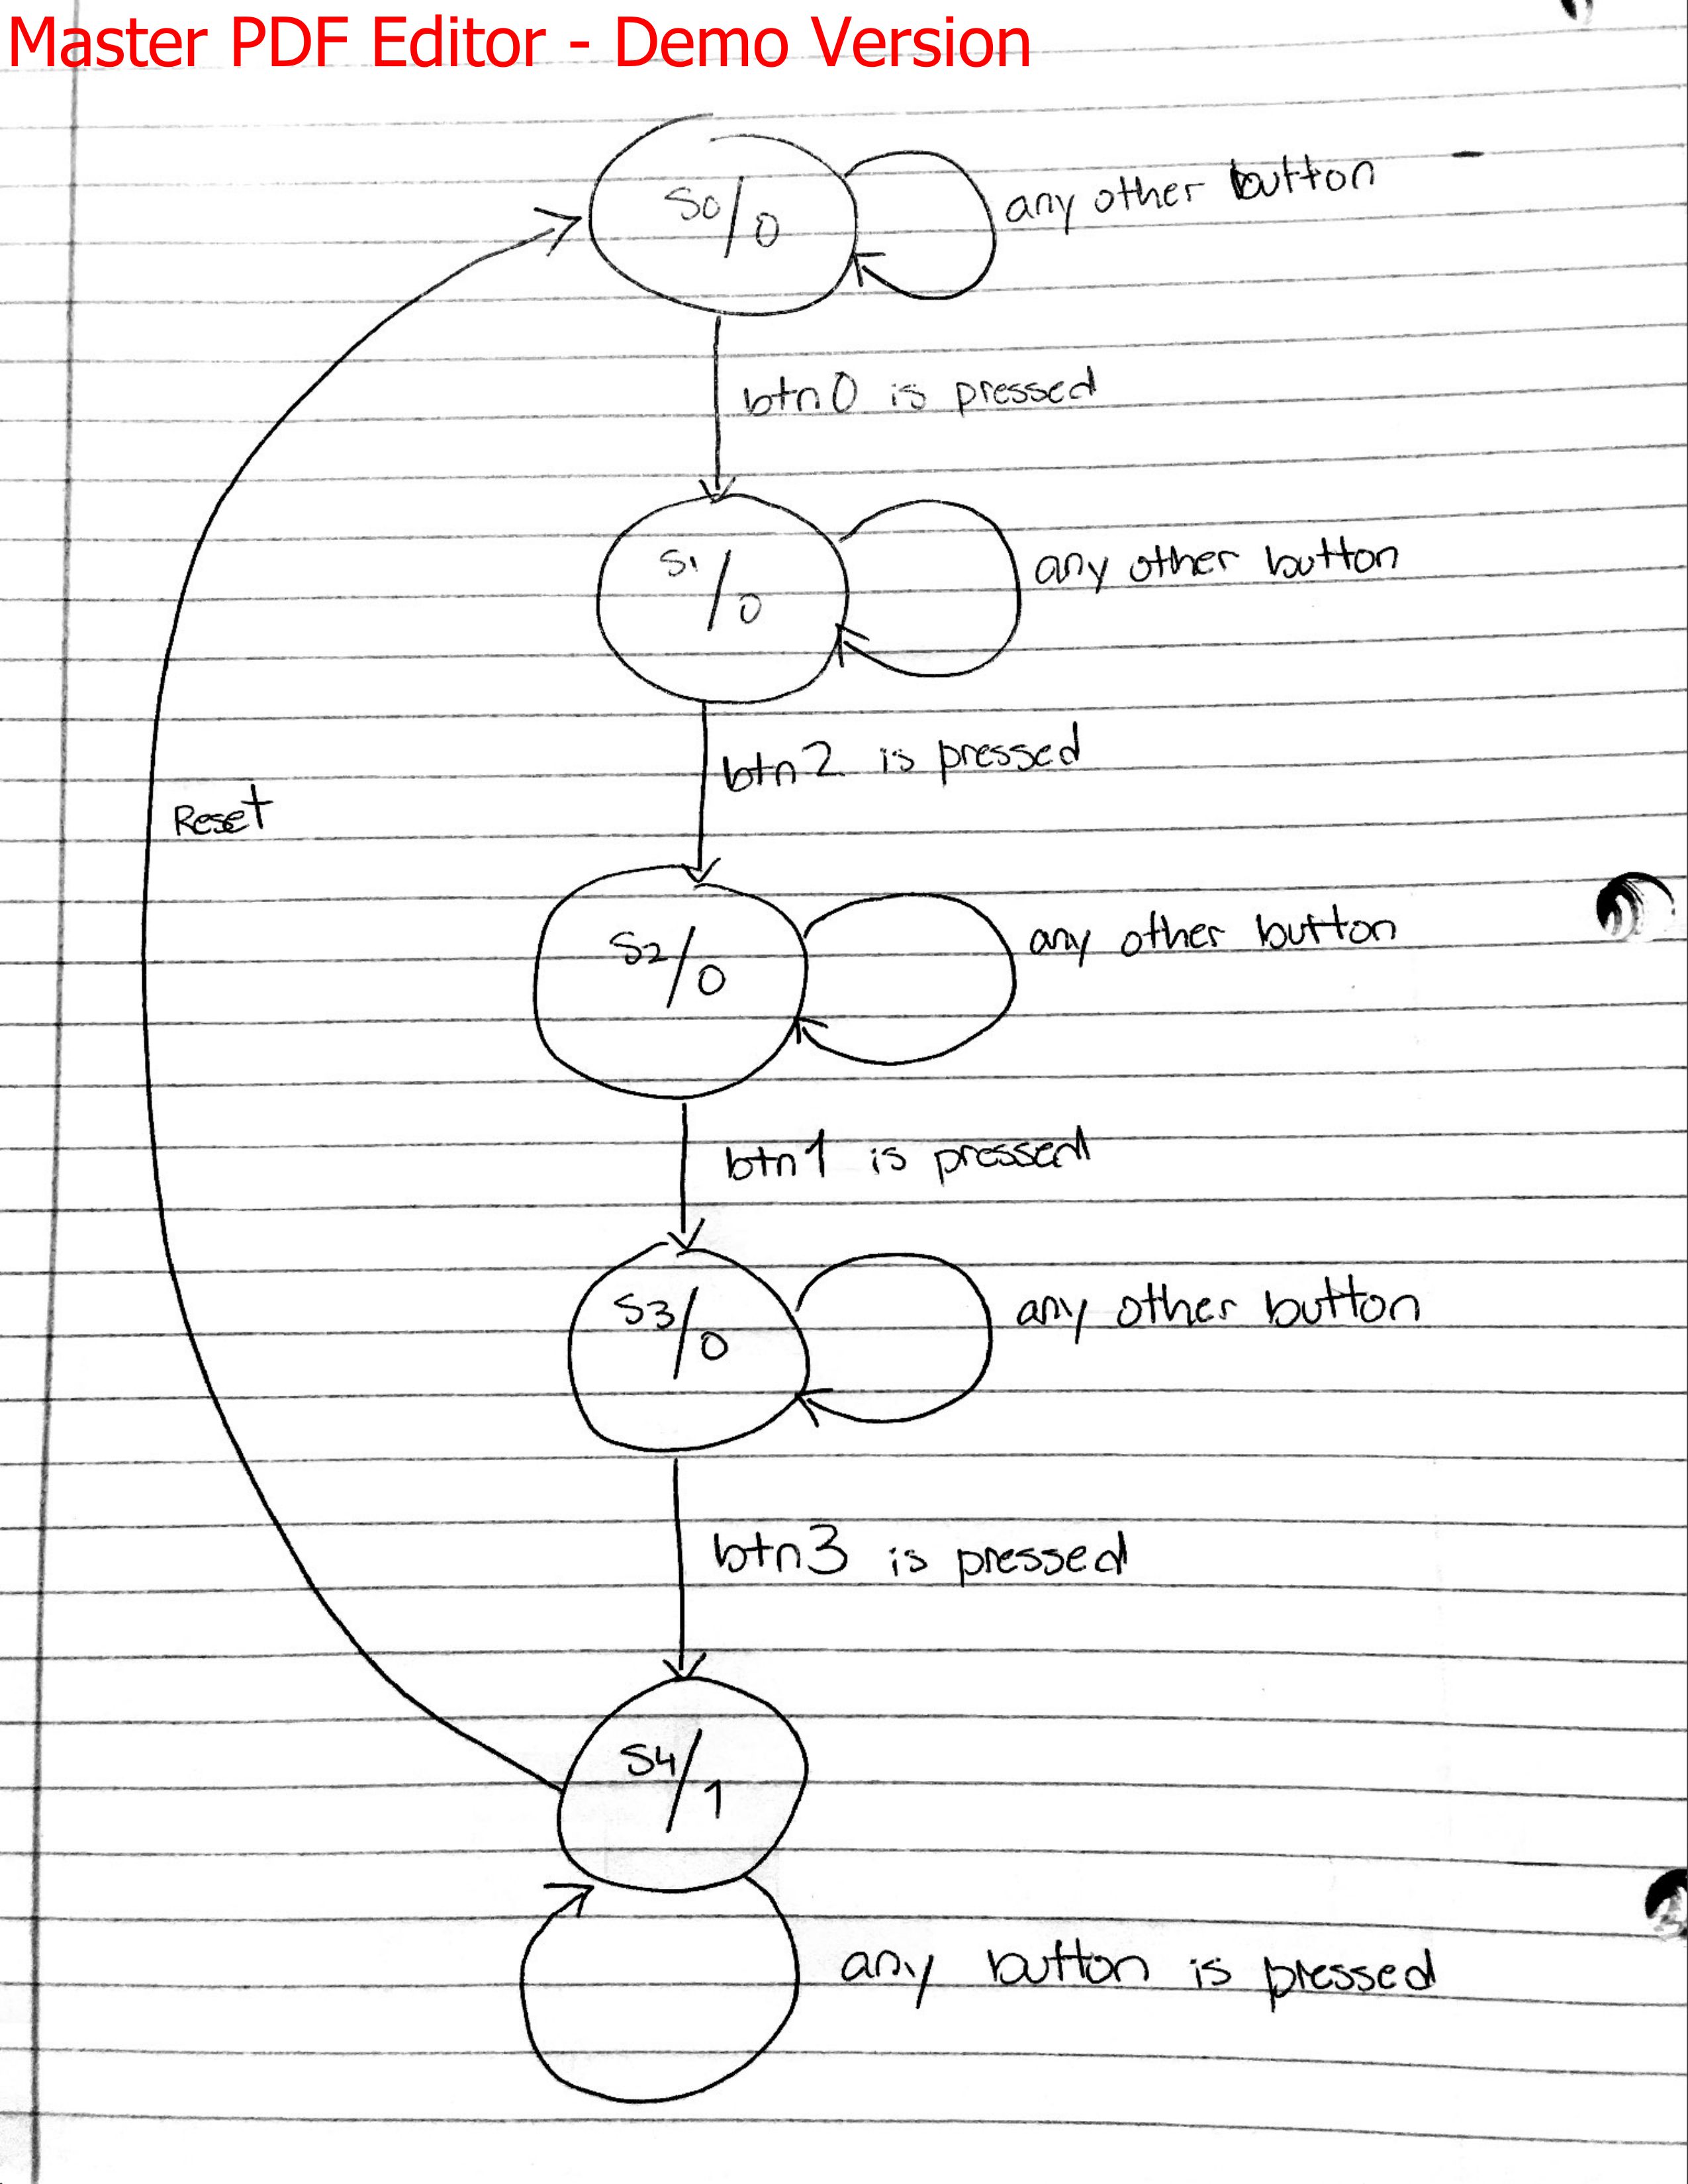 Master PDF Editor - Demo Version
S0/0
any other button
btn0 is pressed
S1/0
any other button
btn2 is pressed
Reset
S2/0
any other button
btn1 is pressed
S3/0
any other button
btn3 is pressed
S4/1
any button is pressed